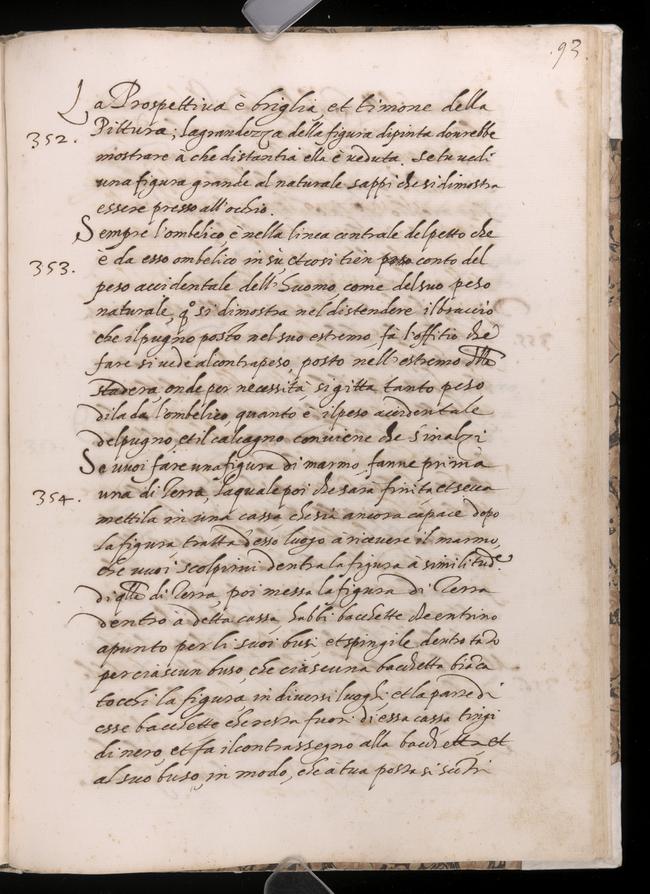 93
La Prospettiva è briglia, et timone della
352. Pittura; la grandezza della figura dipinta dourebbe
mostrare à che distantia ella è ueduta, se tu uedi
una figura grande al naturale sappi che si dimostra
essere presso all'occhio.
Sempre l'ombelico è nella linea centrale del petto che
353. è da esso ombelico in sù, et cosi tien conto del
peso accidentale dell'huomo come del suo peso
naturale, qº si dimostra nel distendere il braccio
che il pugno posto nel suo estremo, fà l'offitio che
fare si uede al contrapeso, posto nell'estremo dlla
stadera, onde per necessità, si gitta tanto peso
di la da l'ombelico quanto è il peso accidentale
del pugno, et il calcagno conviene che s'inalzi
Se uuoi fare una figura di marmo, fanne prima
354. una di Terra, la quale poi che sarà finita et secca
mettila in una cassa che sia ancora capace dopo
la figura tratta d'esso luogo à ricevere il marmo,
che uuoi scolpirui dentro la figura à similitude
di qlla di Terra, poi messa la figura di Terra
dentro à detta cassa habbi bacchette che entrino
apunto per li suoi busi, et spingile dentro tato
per ciascun buso, che ciascuna bacchetta biaca
tocchi la figura in diuersi luoghi, et la parte di
esse bacchette che resta fuori di essa cassa tingi
di nero, et fà il contrassegno alla bacchetta et
al suo buso, in modo, che à tua posta si scotri